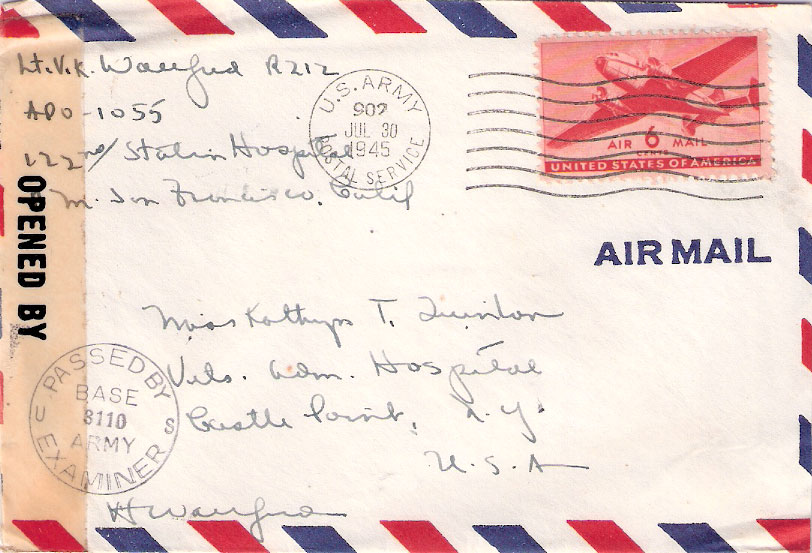 Lt. V. K. R212
APO-1055
122nd Station Hospital
San Francisco, Calif
U.S. ARMY
907
JUL 30
1945
POSTAL SERVICE
AIR 6 MAIL
CENTS
UNITED STATES OF AMERICA
AIR MAIL
OPENED BY
Miss T.
Vets. Adm. Hospital
Castle Point, N.Y.
U.S.A
PASSED BY
BASE
3110
ARMY
EXAMINER
U S